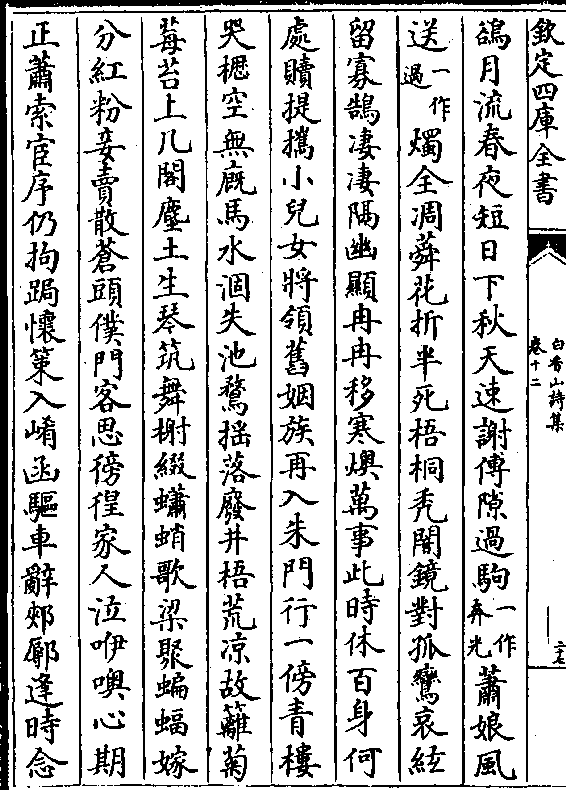 欽定四庫全書
白香山詩集
卷十二
二十七
鵒月流春夜短日下秋天速謝傅隙過駒一作奔光蕭娘風
送一作過燭全凋蕣花折半死梧桐秃闇鏡對孤鸞哀絃
留寡鵠淒淒隔幽顯冉冉移寒燠萬事此時休百身何
處贖提攜小兒女將領舊姻族再入朱門行一傍青樓
哭櫪空無廐馬水涸失池鶩揺落廢井梧荒凉故籬菊
莓苔上几閣塵土生琴筑舞榭綴蠨蛸歌梁聚蝙蝠嫁
分紅粉妾賣散蒼頭僕門客思徬徨家人泣咿噢心期
正蕭索宦序仍拘跼懷策入崤函驅車辭郟鄏逢時念